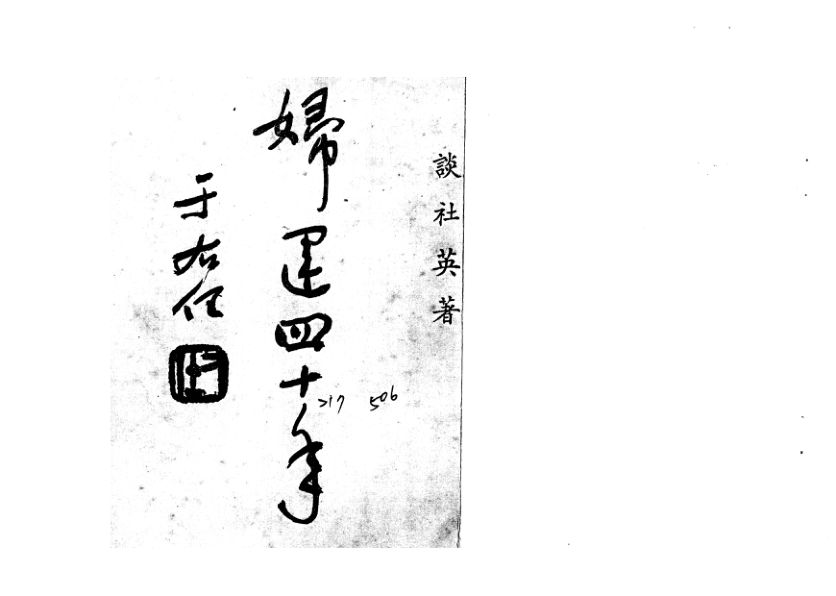 談社英著
婦運四十年
于右任
217 506